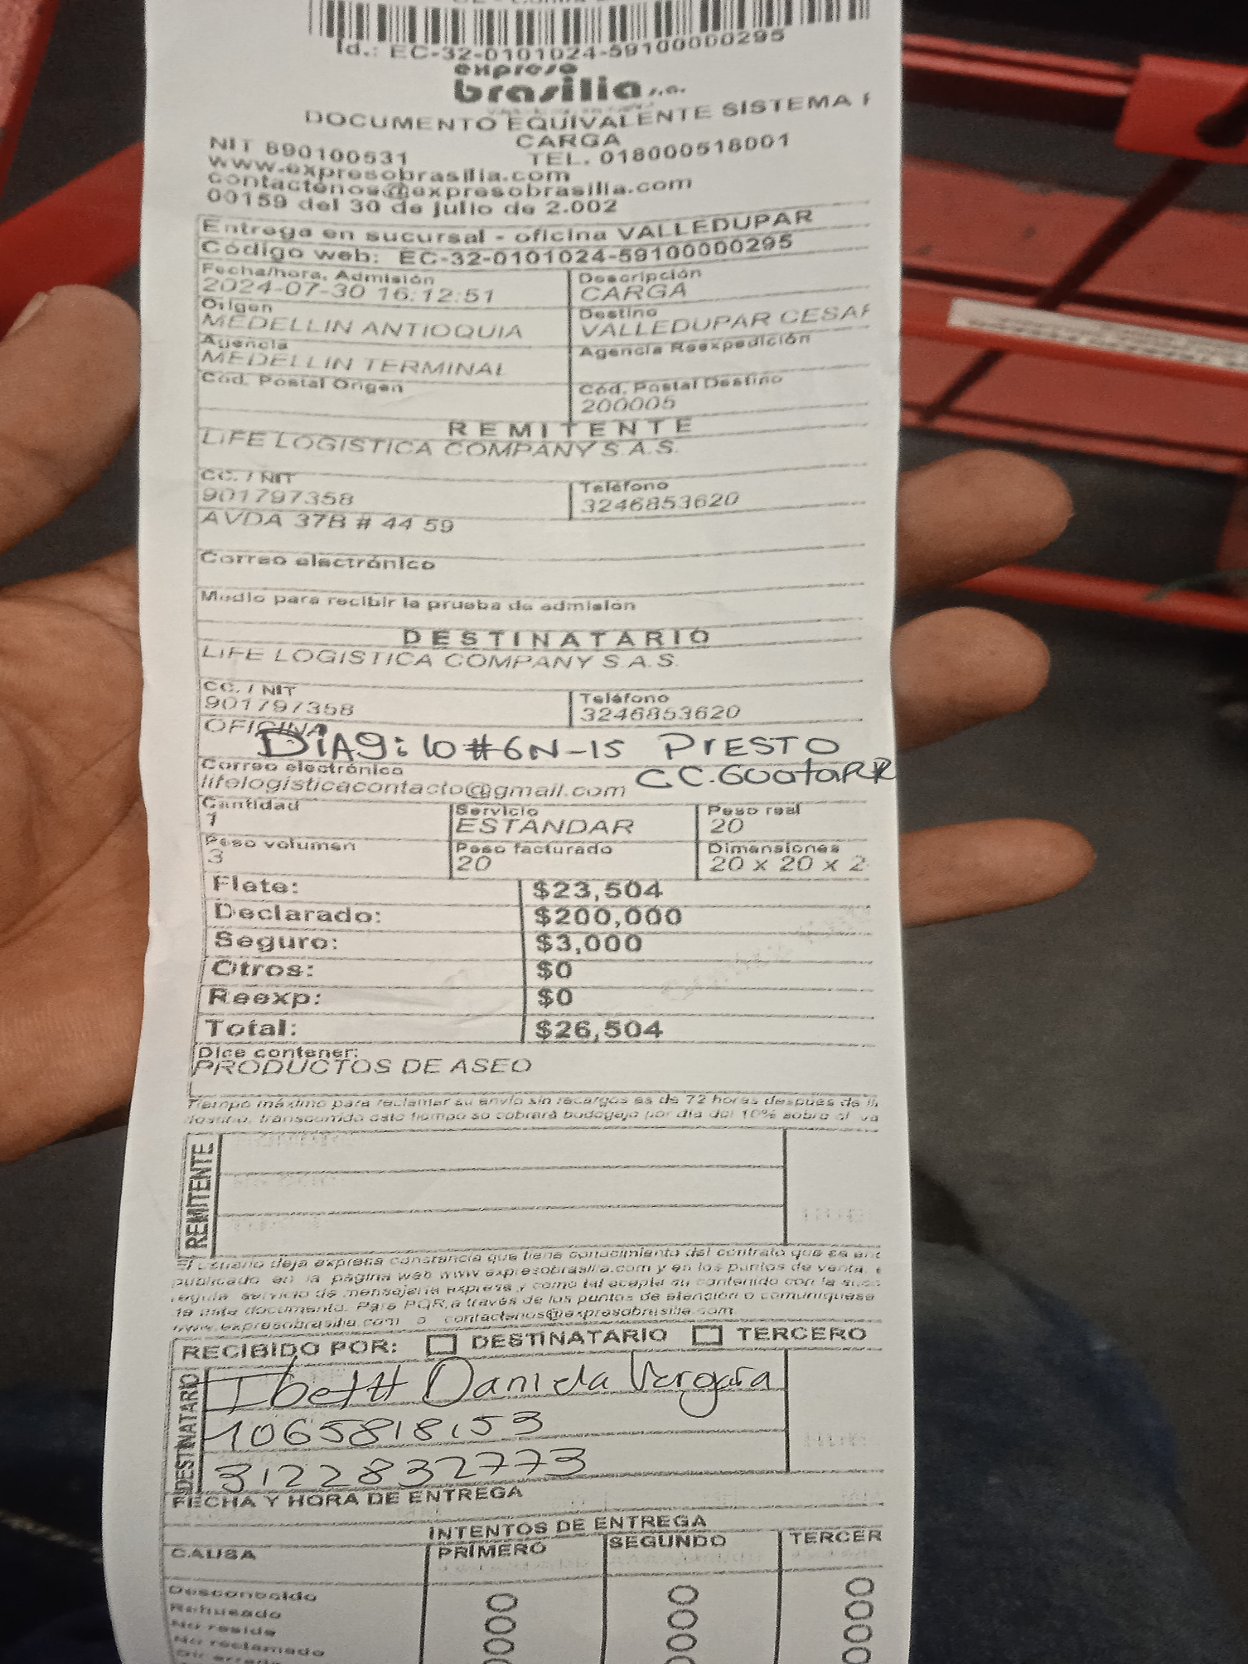 Id.: EC-32-0101024-59100000295
expreso
brasilia s.a.
DOCUMENTO EQUIVALENTE SISTEMA
CARGA
NIT 890100531 TEL. 018000518001
www.expresobrasilia.com
contactenos@expresobrasilia.com
00159 del 30 de julio de 2.002
Entrega en sucursal - oficina VALLEDUPAR
Código web: EC-32-0101024-59100000295
Fecha/hora. Admisión Descripción
2024-07-30 16:12:51 CARGA
Origen Destino
MEDELLIN ANTIOQUIA VALLEDUPAR CESAR
Agencia Agencia Reexpedición
MEDELLIN TERMINAL
Cód. Postal Origen Cód. Postal Destino
200005
REMITENTE
LIFE LOGISTICA COMPANY S.A.S.
CC. / NIT Teléfono
901797358 3246853620
AVDA 37B # 44 59
Correo electrónico
Medio para recibir la prueba de admisión
DESTINATARIO
LIFE LOGISTICA COMPANY S.A.S.
CC. / NIT Teléfono
901797358 3246853620
OFICINA
DiAg: 10 # 6N-15 PrESTO
Correo electrónico C.C. GuataPR
lifelogisticacontacto@gmail.com
Cantidad Servicio Peso real
1 ESTANDAR 20
Peso volumen Peso facturado Dimensiones
3 20 20 x 20 x 2
Flete: $23,504
Declarado: $200,000
Seguro: $3,000
Otros: $0
Reexp: $0
Total: $26,504
Dice contener:
PRODUCTOS DE ASEO
Tiempo máximo para reclamar su envío sin recargos es de 72 horas después de
destino, transcurrido este tiempo se cobrará bodegaje por día del 10% sobre el va
REMITENTE
El usuario deja expresa constancia que tiene conocimiento del contrato que se
publicado en la página web www.expresobrasilia.com y en los puntos de venta,
regula servicio de mensajería express y como tal acepta su contenido con la
de este documento. Para PQR, a través de los puntos de atención o comuníquese
www.expresobrasilia.com o contactenos@expresobrasilia.com
RECIBIDO POR: DESTINATARIO TERCERO
DESTINATARIO
Ibeth Daniela Vergara
1065818153
3122832773
FECHA Y HORA DE ENTREGA
INTENTOS DE ENTREGA
CAUSA PRIMERO SEGUNDO TERCER
Desconocido
Rehusado
No reside
No reclamado